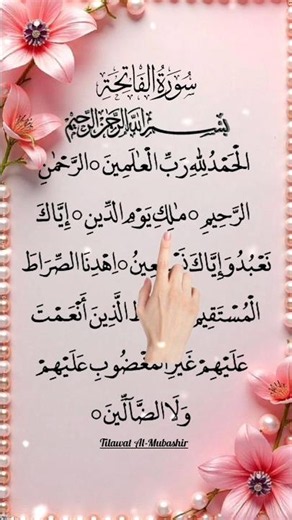 سُورَةُ الْفَاتِحَةِ
بِسْمِ اللَّهِ الرَّحْمَٰنِ الرَّحِيمِ
الْحَمْدُ لِلَّهِ رَبِّ الْعَالَمِينَ ۝ الرَّحْمَٰنِ
الرَّحِيمِ ۝ مَالِكِ يَوْمِ الدِّينِ ۝ إِيَّاكَ
نَعْبُدُ وَإِيَّاكَ ۝ اهْدِنَا الصِّرَاطَ
الْمُسْتَقِيمَ الَّذِينَ أَنْعَمْتَ
عَلَيْهِمْ غَيْرِ الْمَغْضُوبِ عَلَيْهِمْ
وَلَا الضَّالِّينَ ۝
Tilawat Al-Mubashir